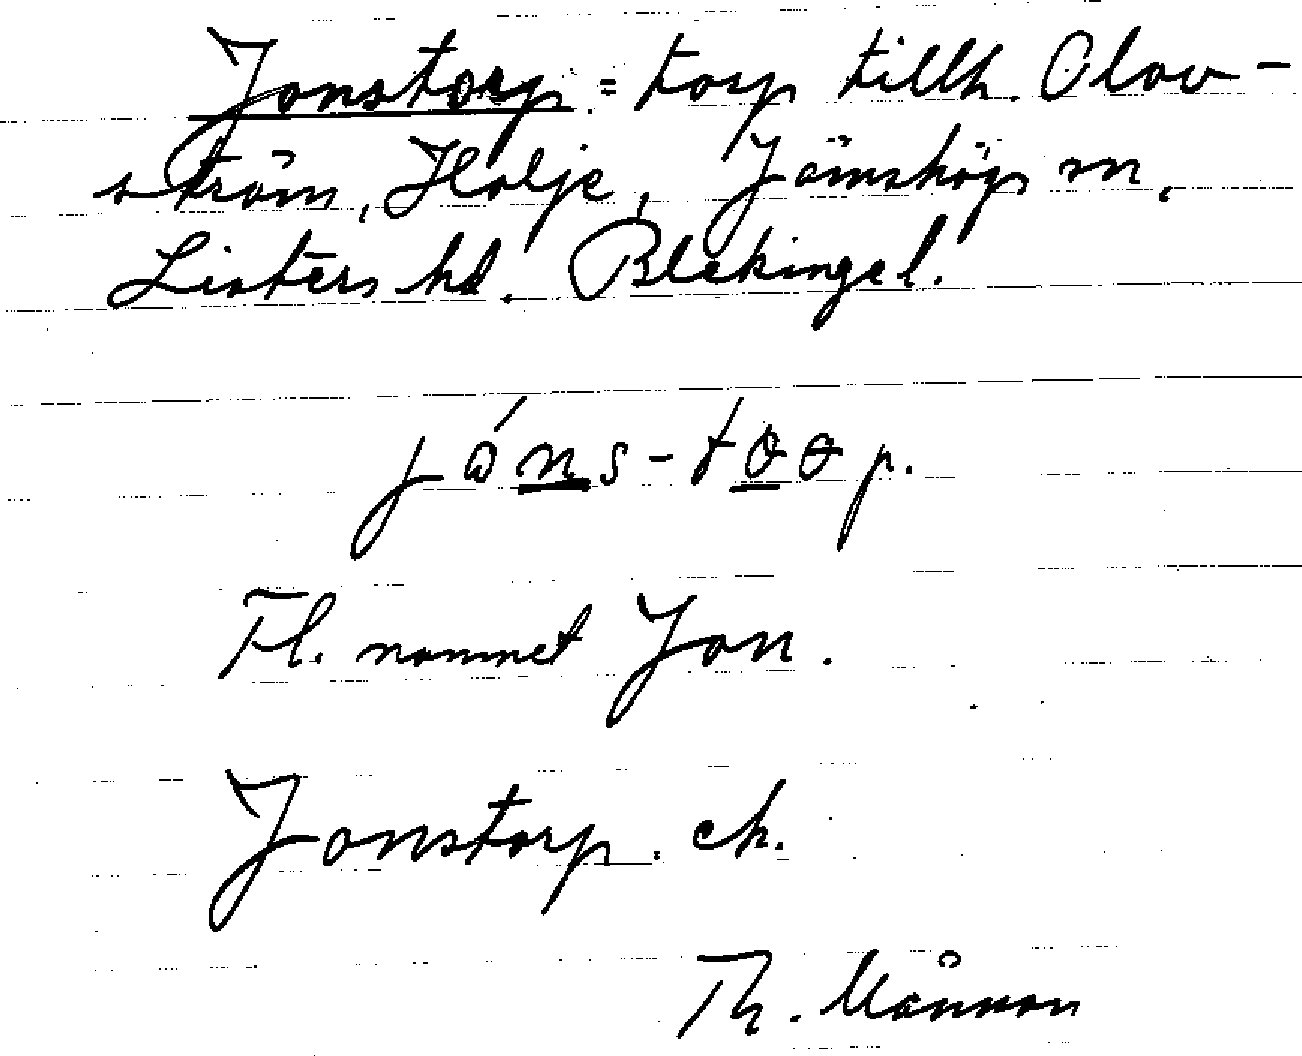 Jonstorp = torp tillh. Olov-
ström, Holje, Jämshögs m,
Listers hd. Blekinge l.
jóns-toop.
Fl. namnet Jon.
Jonstorp. ek.
Th. Månson